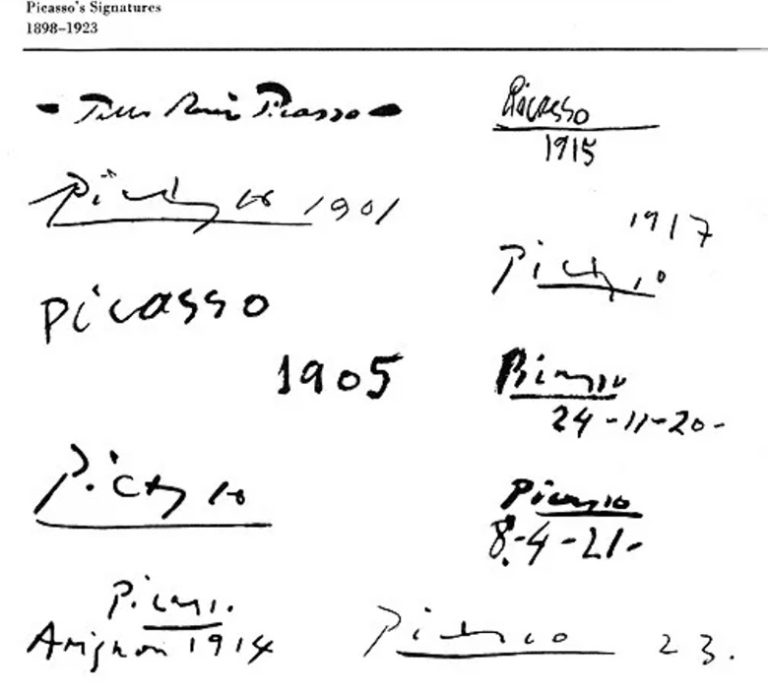 Picasso's Signatures
1898–1923
- Pablo Ruiz Picasso -
Picasso 1901
Picasso
1905
Picasso
Picasso.
Avignon 1914
Picasso
1915
1917
Picasso
Picasso
24-11-20-
Picasso
8-4-21-
Picasso 23.